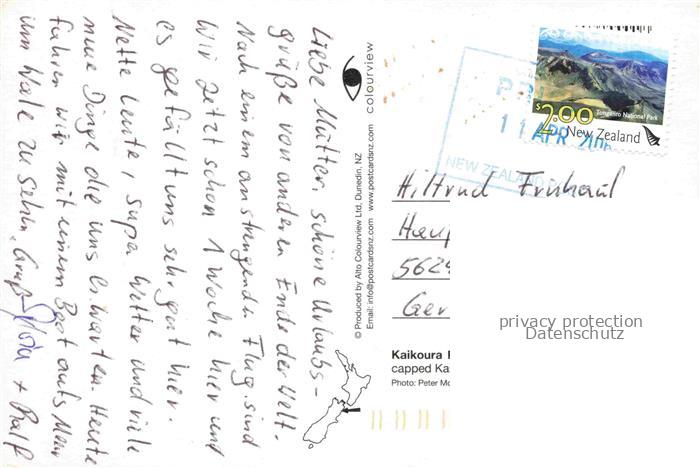 Liebe Mütter, schöne Urlaubs-
grüße von anderen Ende der Welt.
Nach einem anstrengenden Flug sind
wir jetzt schon 1 Woche hier und
es gefällt uns sehr gut hier.
Nette Leute, super Wetter und viele
neue Dinge die uns erwarten. Heute
fahren wir mit einem Boot aufs Meer
um Wale zu sehen. Gruß
+ Ralf
colourview
© Produced by Alto Colourview Ltd, Dunedin, NZ
Email: info@postcardsnz.com www.postcardsnz.com
$2.00
Tongariro National Park
New Zealand
11 APR
NEW ZEALAND
Hiltrud Frühauf
Haup
5624
Ger
privacy protection
Datenschutz
Kaikoura
capped Ka
Photo: Peter Mo